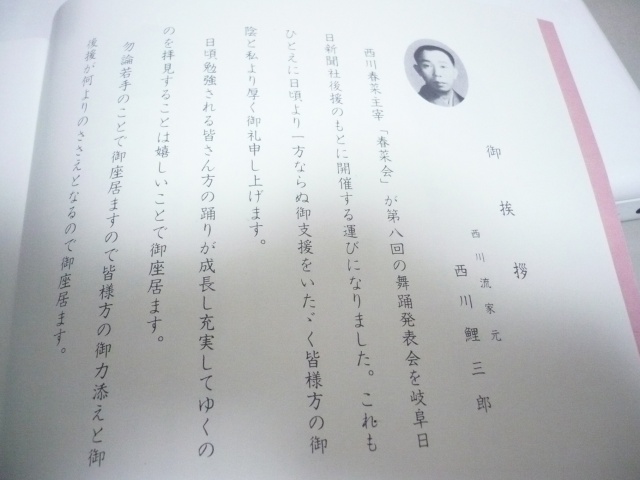 御挨拶
西川流家元
西川鯉三郎
西川春菜主宰「春菜会」が第八回の舞踊発表会を岐阜日
日新聞社後援のもとに開催する運びになりました。これも
ひとえに日頃より一方ならぬ御支援をいたゞく皆様方の御
陰と私より厚く御礼申し上げます。
日頃勉強される皆さん方の踊りが成長し充実してゆくの
のを拝見することは嬉しいことで御座居ます。
勿論若手のことで御座居ますので皆様方の御力添えと御
後援が何よりのささえとなるので御座居ます。